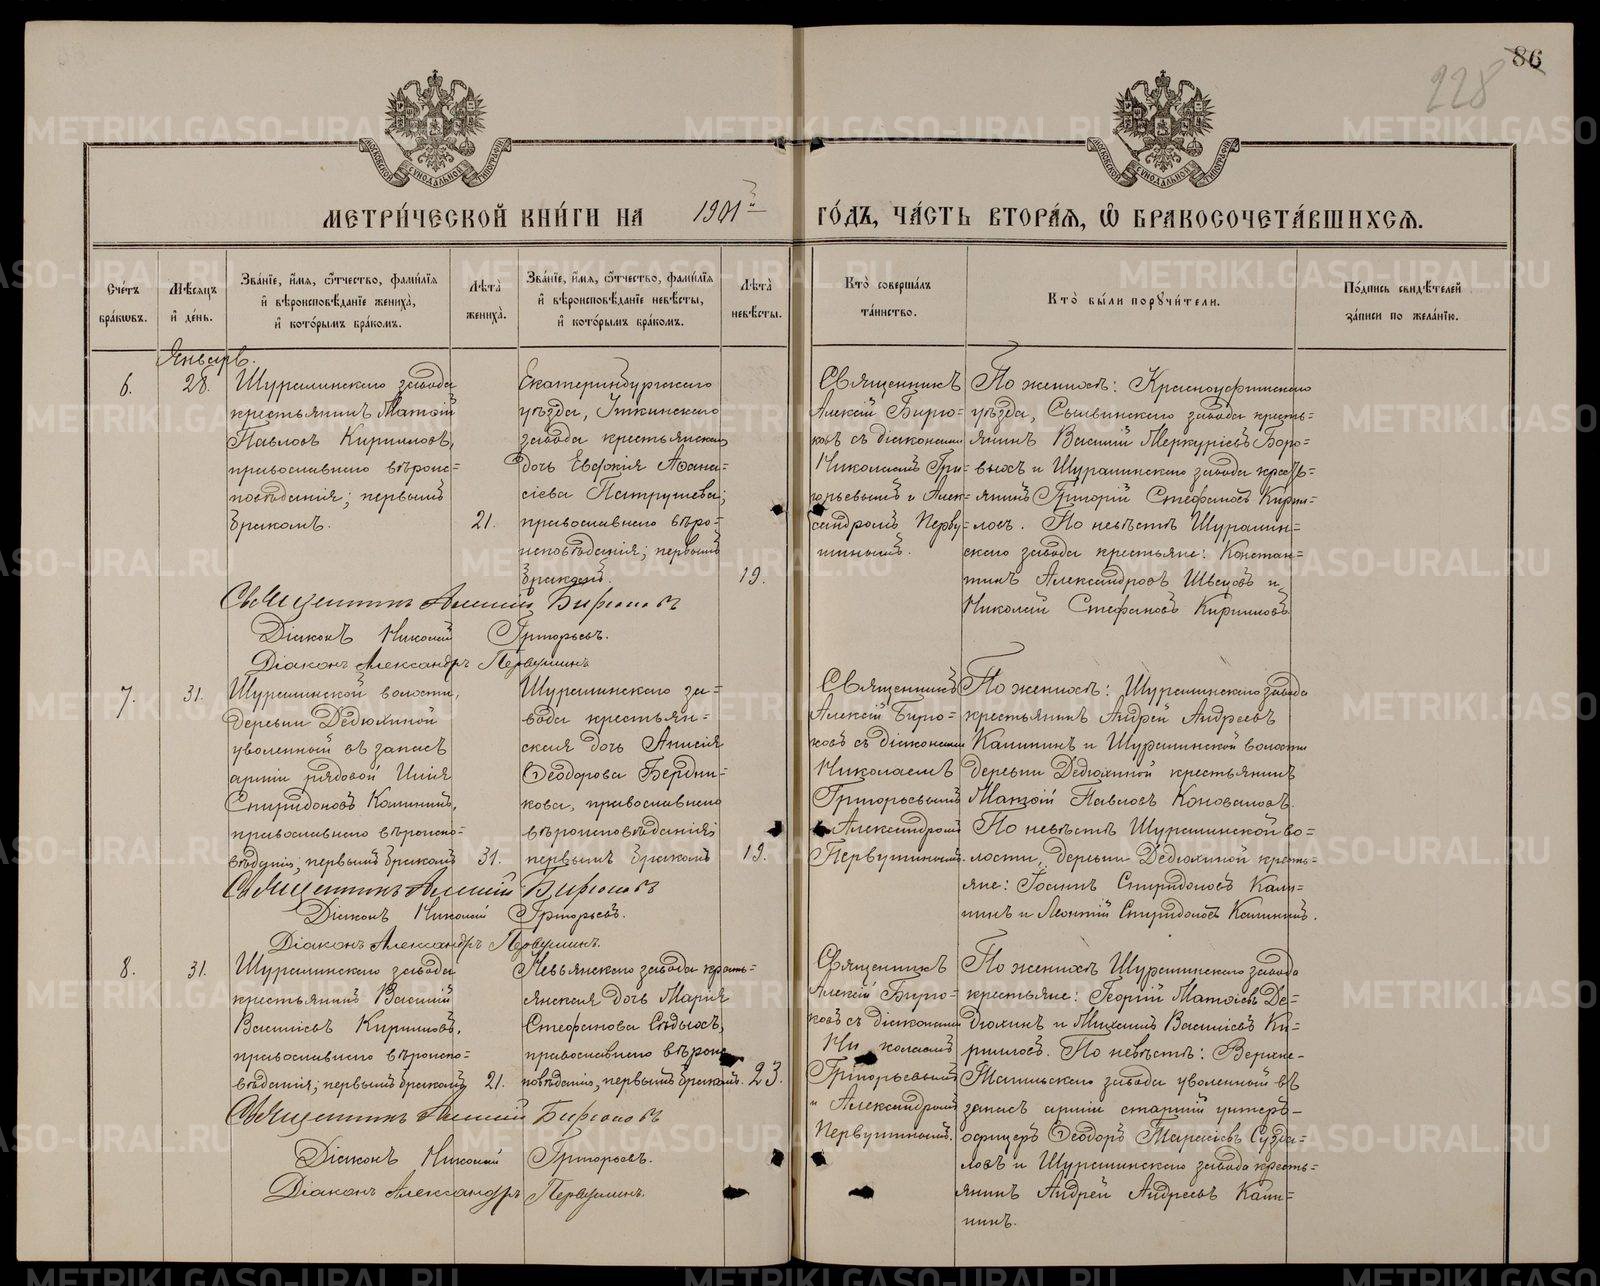 86
228
МЕТРИ́ЧЕСКОЙ КНИ́ГИ НА 1901й ГО́ДЪ, ЧА́СТЬ ВТОРА́Я, Ѿ БРАКОСОЧЕТА́ВШИХСЯ.
Сче́тъ бра́кѡвъ.
Мѣ́сяцъ и҆ де́нь.
Зва́нїе, и҆́мя, ѻ҆́тчество, фами́лїя
и҆ вѣроисповѣ́данїе жениха̀,
и҆ кото́рымъ бра́комъ.
Лѣ́та жениха̀.
Зва́нїе, и҆́мя, ѻ҆́тчество, фами́лїя
и҆ вѣроисповѣ́данїе невѣ́сты,
и҆ кото́рымъ бра́комъ.
Лѣ́та невѣ́сты.
Кто̀ соверша́лъ
та́инство.
Кто̀ бы́ли порꙋчи́тели.
По́дпись свидѣ́телей
за́писи по жела́нїю.
Январь.
6.
28.
Шуралинскаго завода
крестьянинъ Матѳій
Павловъ Кирилловъ,
православнаго вѣроис-
повѣданія; первымъ
бракомъ.
21.
Екатеринбургскаго
уѣзда, Уткинскаго
завода крестьянская
дочь Евфимія Аѳана-
сіева Патрушева;
православнаго вѣро-
исповѣданія; первымъ
бракомъ.
19.
Священникъ
Алексій Бирю-
ковъ съ діаконами
Николаемъ Гри-
горьевымъ и Алек-
сандромъ Перву-
шинымъ.
По женихѣ: Красноуфимскаго
уѣзда, Сылвинскаго завода кресть-
янинъ Василій Меркурьевъ Боро-
выхъ и Шуралинскаго завода кресть-
янинъ Григорій Стефановъ Кирил-
ловъ. По невѣстѣ Шуралин-
скаго завода крестьяне: Констан-
тинъ Александровъ Швецовъ и
Николай Стефановъ Кирилловъ.
Священникъ Алексій Бирюковъ
Діаконъ Николай Григорьевъ.
Діаконъ Александръ Первушинъ
7.
31.
Шуралинской волости,
деревни Дедюхиной
уволенный въ запасъ
арміи рядовой Илія
Спиридоновъ Калининъ,
православнаго вѣроиспо-
вѣданія; первымъ бракомъ
31.
Шуралинскаго за-
вода крестьян-
ская дочь Анисія
Ѳеодорова Бердни-
кова, православнаго
вѣроисповѣданія;
первымъ бракомъ
19.
Священникъ
Алексій Бирю-
ковъ съ діаконами
Николаемъ
Григорьевымъ
и Александромъ
Первушинымъ.
По женихѣ: Шуралинскаго завода
крестьянинъ Андрей Андреевъ
Калининъ и Шуралинской волости
деревни Дедюхиной крестьянинъ
Матѳій Павловъ Коноваловъ.
По невѣстѣ Шуралинской во-
лости, деревни Дедюхиной кресть-
яне: Іоаннъ Спиридоновъ Кали-
нинъ и Леонтій Спиридоновъ Калининъ.
Священникъ Алексій Бирюковъ
Діаконъ Николай Григорьевъ.
Діаконъ Александръ Первушинъ.
8.
31.
Шуралинскаго завода
крестьянинъ Василій
Васильевъ Кирилловъ,
православнаго вѣроиспо-
вѣданія; первымъ бракомъ
21.
Невьянскаго завода кресть-
янская дочь Марія
Стефанова Сѣдыхъ,
православнаго вѣроис-
повѣданія, первымъ бракомъ.
23.
Священникъ
Алексій Бирю-
ковъ съ діаконами
Николаемъ
Григорьевымъ
и Александромъ
Первушинымъ.
По женихѣ Шуралинскаго завода
крестьяне: Георгій Матѳіевъ Де-
дюхинъ и Михаилъ Васильевъ Ки-
рилловъ. По невѣстѣ: Верхне-
Тагильскаго завода уволенный въ
запасъ арміи старшій унтеръ-
офицеръ Ѳеодоръ Тарасіевъ Сузда-
ловъ и Шуралинскаго завода кресть-
янинъ Андрей Андреевъ Кали-
нинъ.
Священникъ Алексій Бирюковъ
Діаконъ Николай Григорьевъ.
Діаконъ Александръ Первушинъ.
METRIKI.GASO-URAL.RU